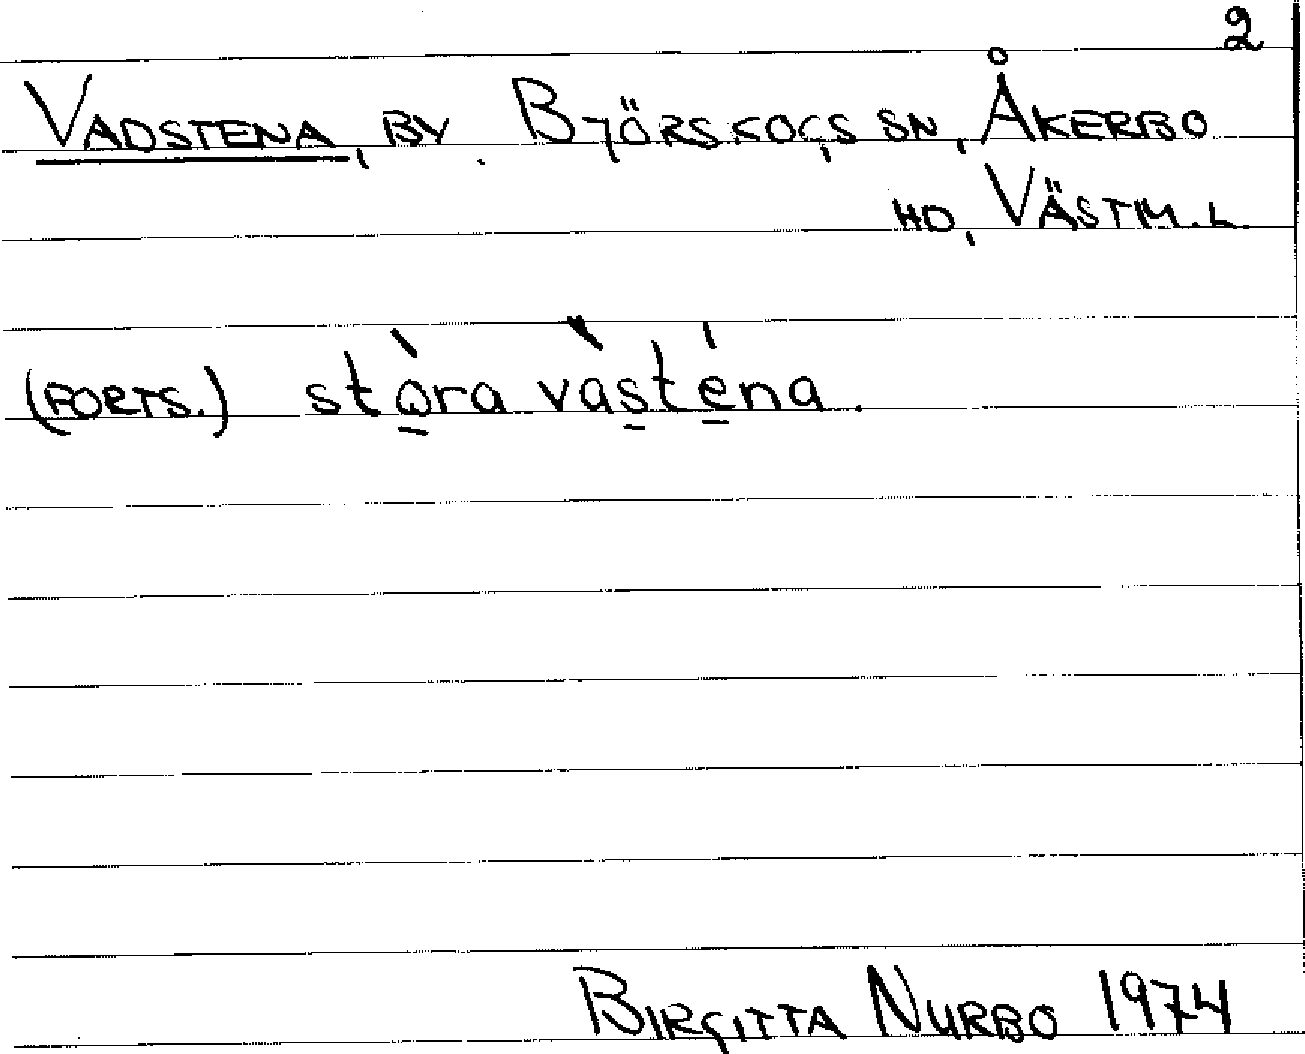 2
VADSTENA, BY. BJÖRSKOGS SN, ÅKERBO
HD, VÄSTM.L.
(FORTS.) stòra vàsténa.
BIRGITTA NURBO 1974